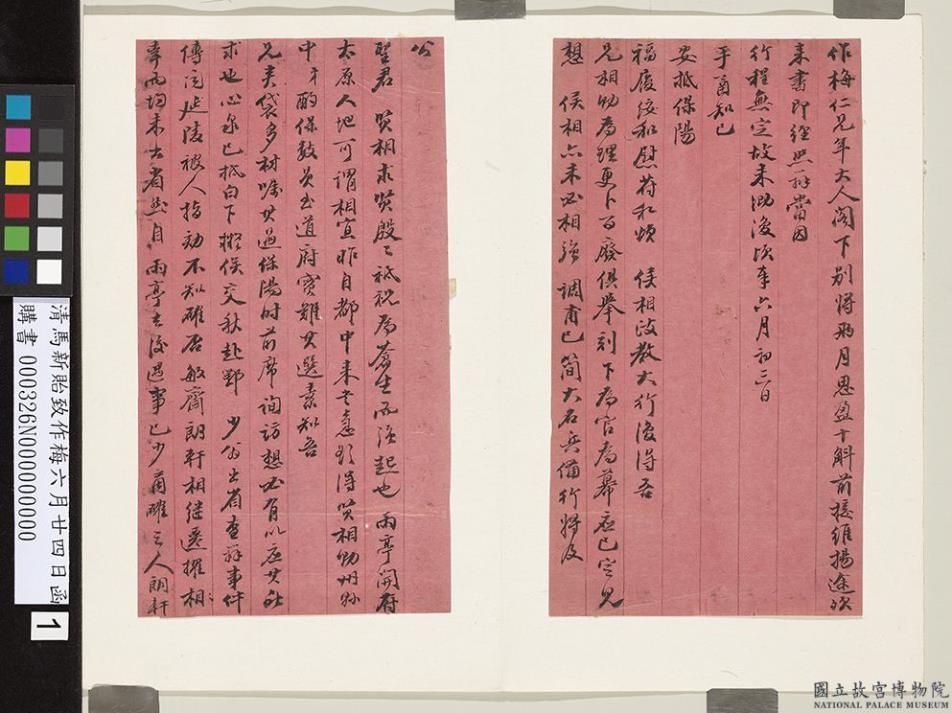 作梅仁兄年大人閣下別將兩月思盈十斛前接維揚途次
來書即經照辦當因
行程無定故未泐復頃奉六月初三日
手函知已
安抵保陽
福履綏和慰符私頌 侯相政教大行復得吾
兄相助為理更卜百廢俱舉刻下為官為幕應已定見
想 侯相亦未必相強 調甫已簡大名兵備行將及
公
聖君 賢相求賢殷殷祗祝為蒼生而強起也 雨亭開府
太原人地可謂相宜昨自都中來書意欲得賢相助州縣
中才酌保數員至道府實難其選素知吾
兄夾袋多材囑其過保陽時前席詢訪想必有以應其
求也心泉已抵白下擬俟交秋赴鄂 少翁出省查辦事件
傳聞延陵被人指劾不知確否敏齋朗軒相繼遷擢相
率而均未出省然自 雨亭去後遇事已少商確之人朗軒
清馬新貽致作梅六月廿四日函
購書 000326N000000000
1
國立故宮博物院
NATIONAL PALACE MUSEUM